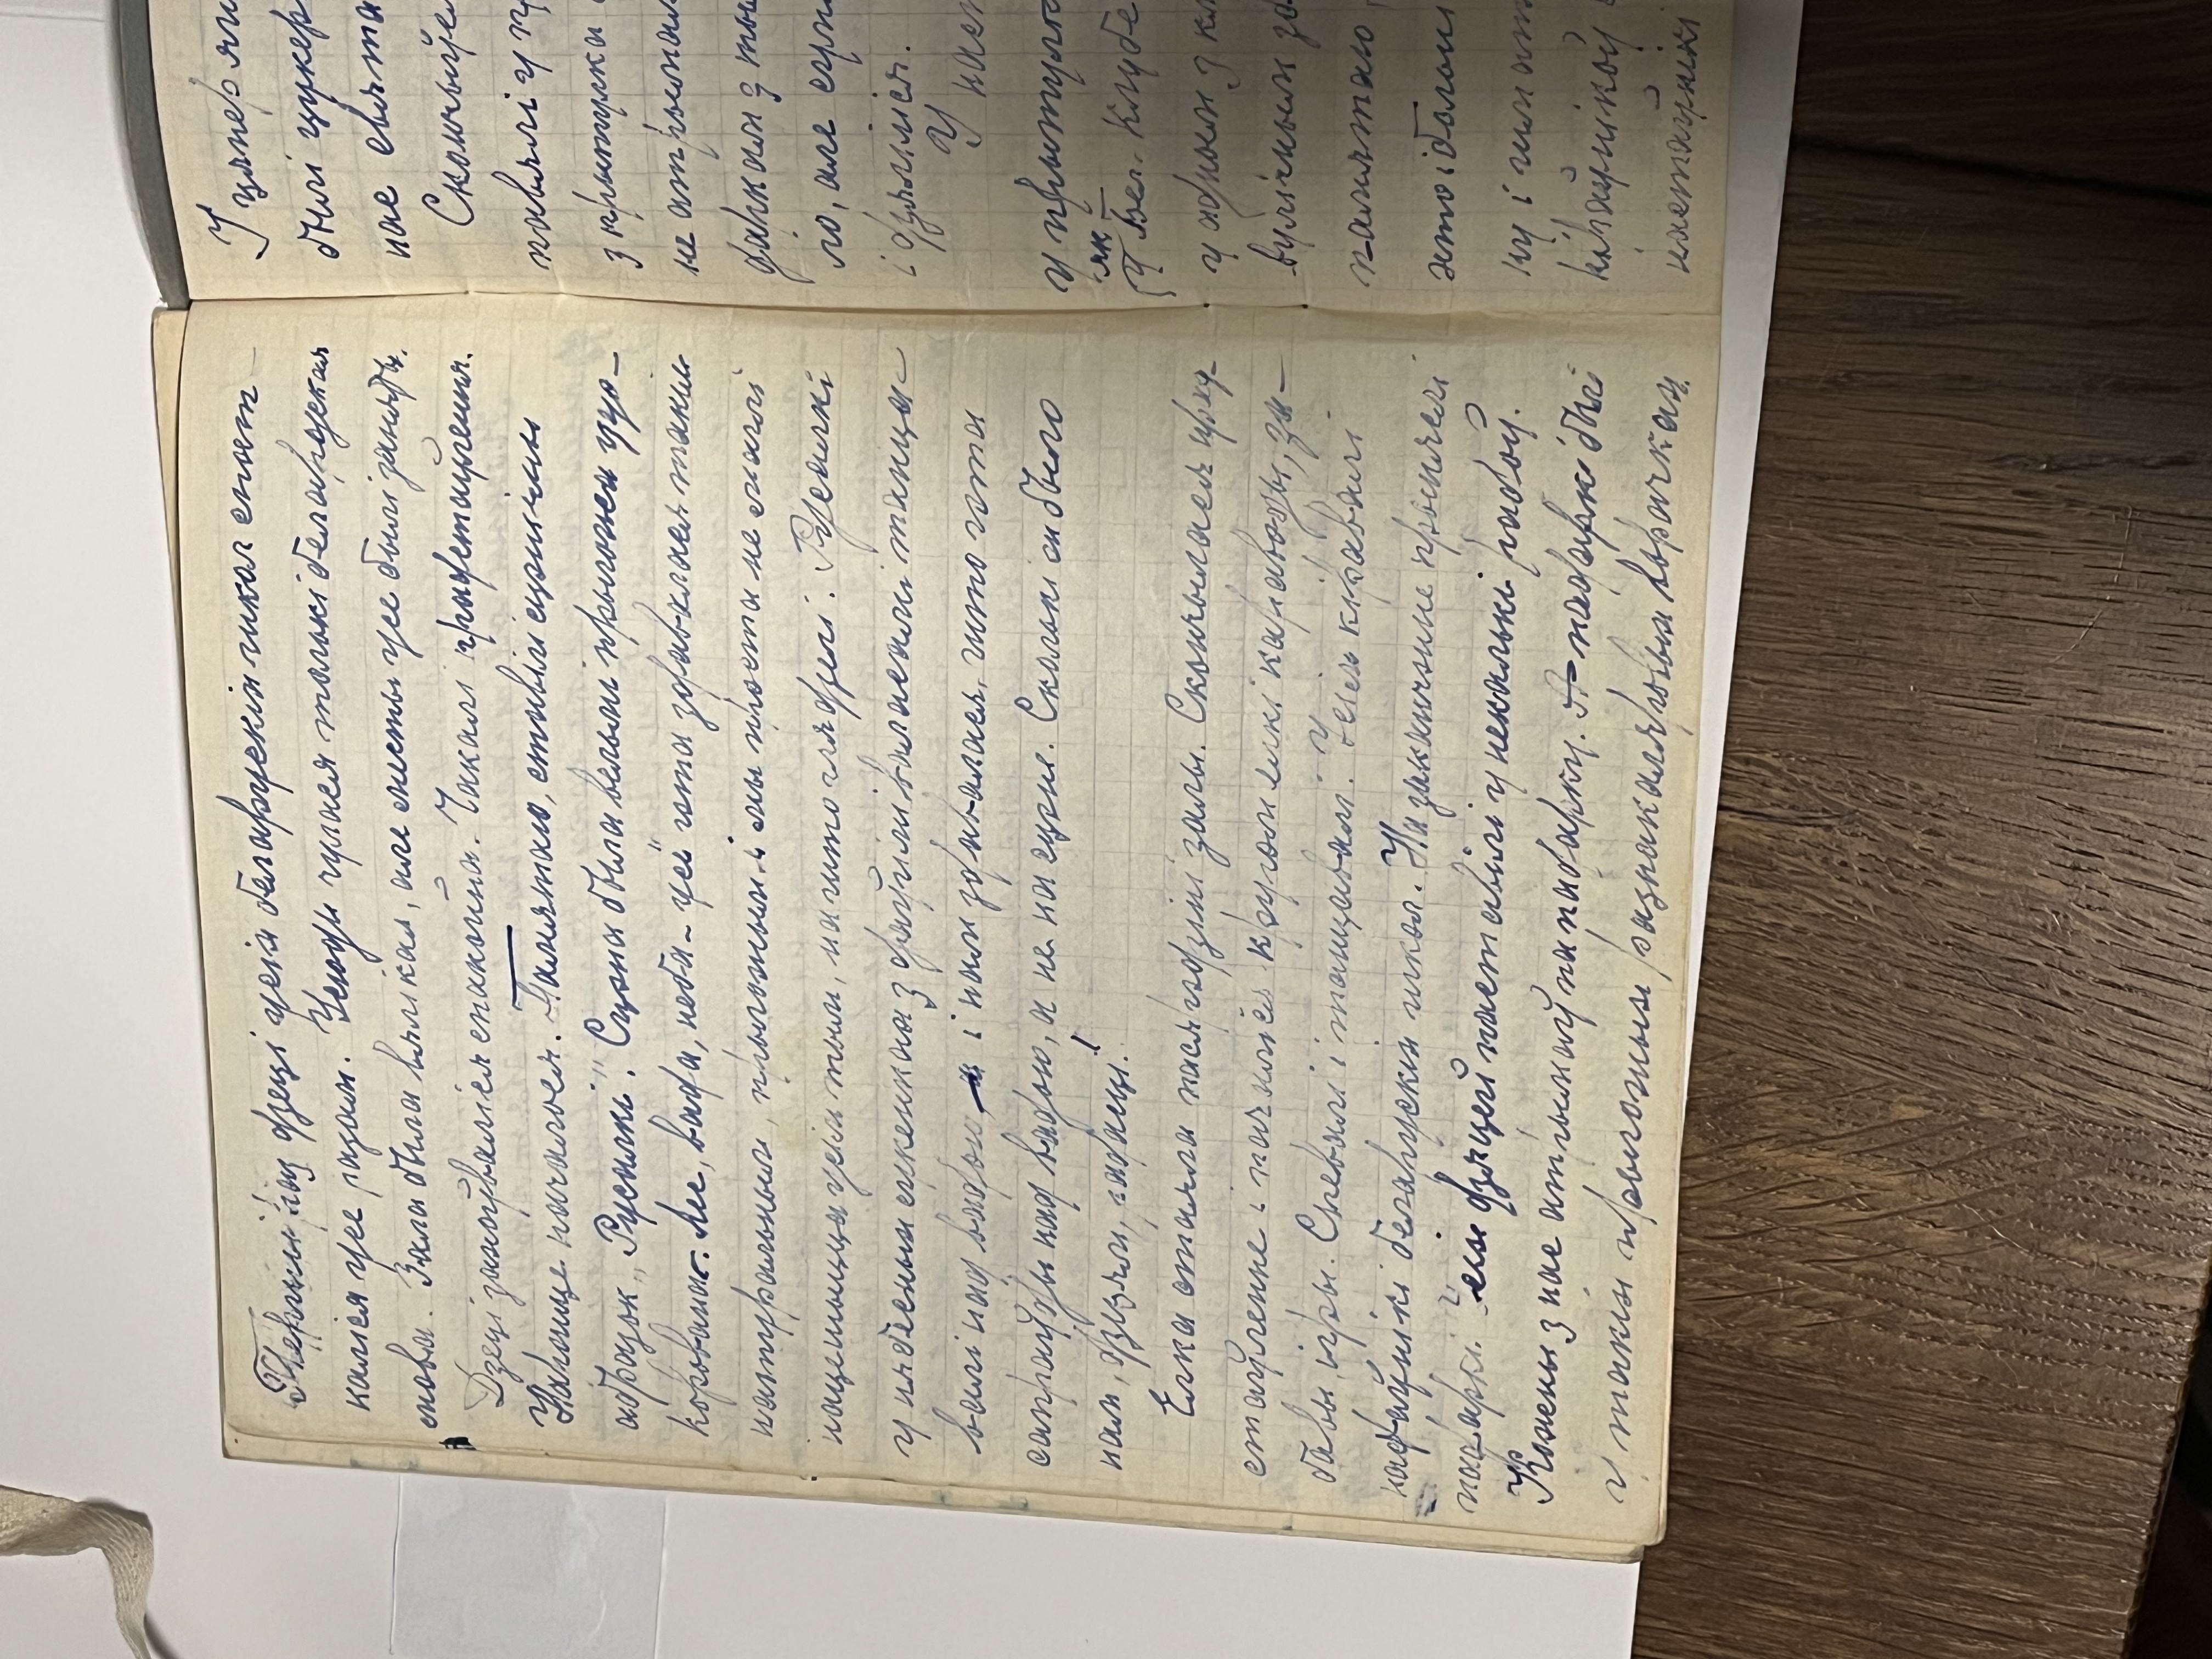 Першы раз дзеці усіх беларускіх школ спат-
каліся усе разам. Усюды чулася толькі беларуская
мова. Зала была вялікая, але месты усе былі заняты.
Дзеці захоўваліся спакойна. Чакалі прадстаўлення.
Нарэшце началося. Памятаю, ставілі сцэнічны
абразок „Русалкі". Сцэна была вельмі прыгожа удэ-
корована. Лес, вада, неба - усё гэта здавалася такім
натуральным, прыгожым і мы проста не маглі
нацешыцца усім тым, на што глядзелі. Русалкі
у нябесных сукенках з доўгімі валасамі танца-
валі над вадою, і нам здавалася, што гэта
сапраўды над вадою, а не на сцэне. Сколькі ж было
нам, дзецям, радасці!
Елка стаяла пасярэдзіні залы. Скончылася прад-
стаўленне і пачаліся кругом елкі караводы, за-
бавы, ігры. Спевалі і танцавалі. Усім кіравалі
надаўнікі беларускіх школ. На заканчэнне прынялі
падаркі. Усіх дзяцей паставілі у некалькі радоў.
Кожны з нас атрымаў па падарку. А падаркі былі
у такіх прыгожых разнакаляровых ворачках.
І цяпер
былі цукер
нас свята
Скончыўся
павялі у
з прытулка
не атрымал
даркам з
ло, але
і дзяліліся.
У нас
у прытулк
як
у Бел. Клубе
у адным з
вулічным
памятаю
хто і больш
ку і
кіраўнікоў
настаўнікі